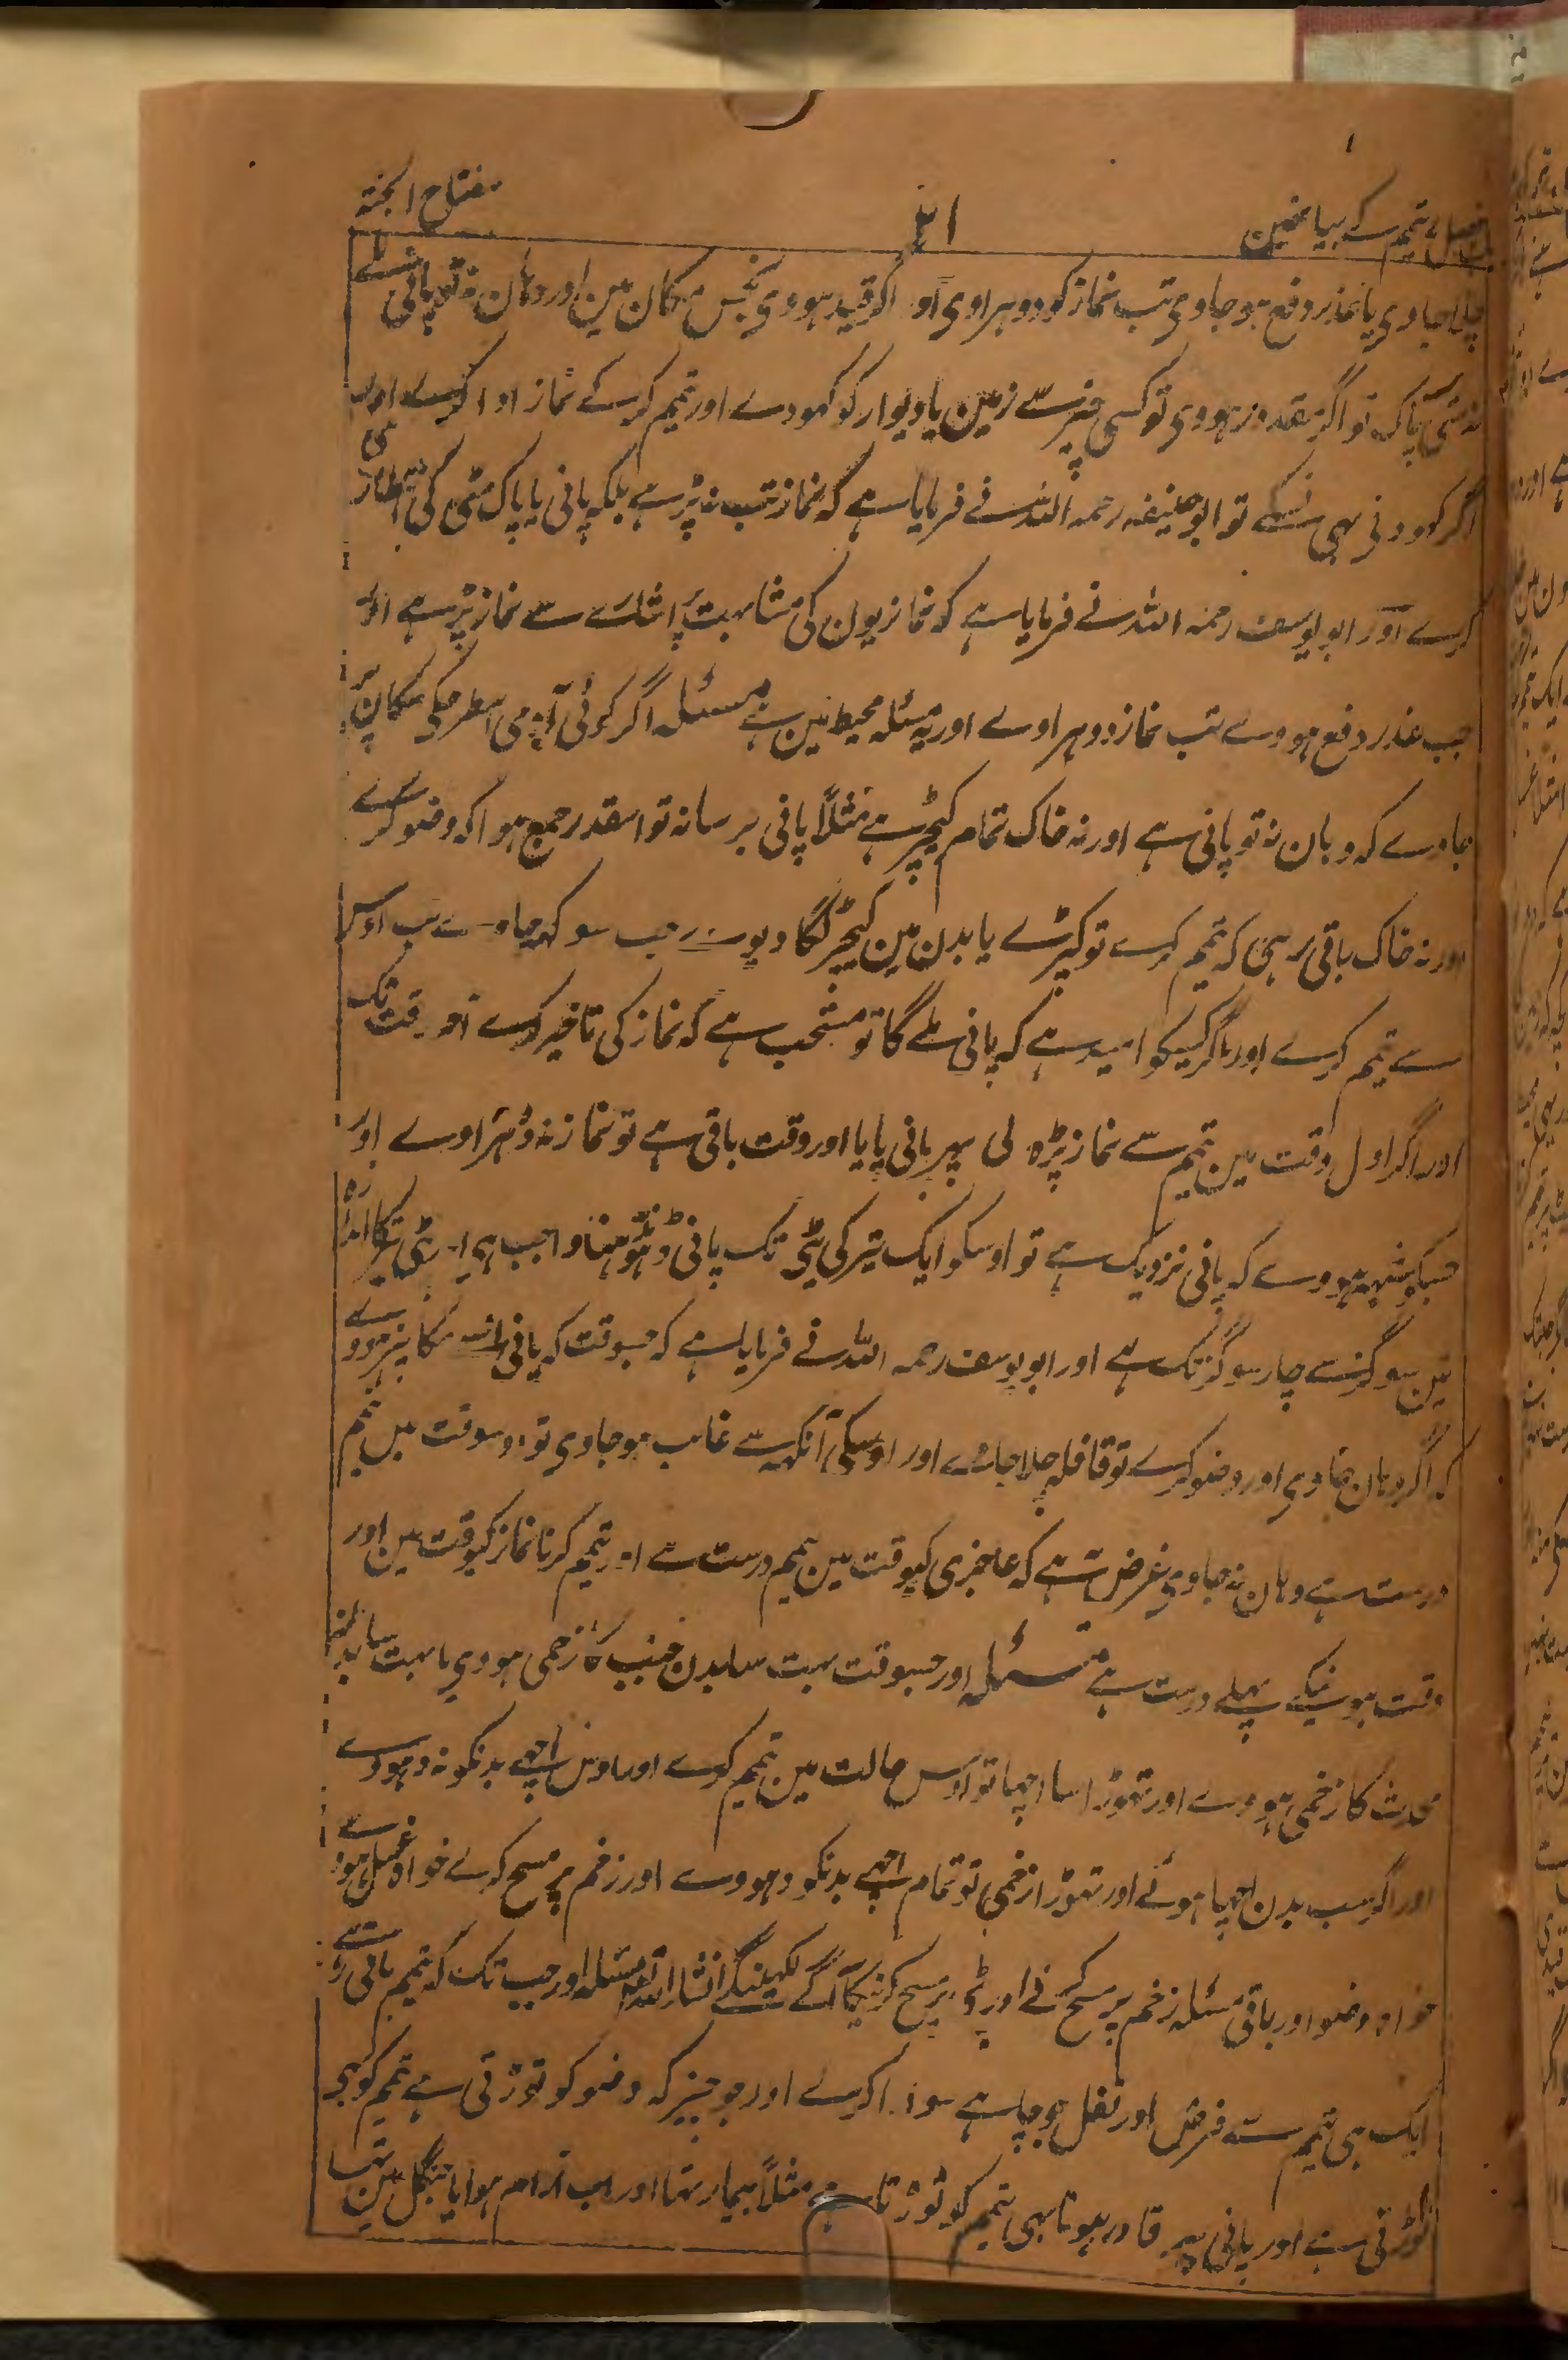 فصل تیمم کے بیانمین
مفتاح الجنۃ
چلا جاوی یا عذر دفع ہو جاوی تب نماز کو دوہراوی اور اگر قید ہووی نجس مکان مین اور وہان نہ تو پانی ملے
نہ مٹی پاک تو اگر مقدور ہووی تو کسی چیز سے زمین یا دیوار کو کھودے اور تیمم کرکے نماز ادا کرے اور
اگر کھودنی بھی نسکے تو ابو حنیفہ رحمہ اللہ نے فرمایا ہے کہ نماز تب نہ پڑہے بلکہ پانی یا پاک مٹی کی انتظاری
کرے اور ابو یوسف رحمہ اللہ نے فرمایا ہے کہ نمازیون کی مشابہت پر اشارے سے نماز پڑہے اور
جب عذر دفع ہووے تب نماز دوہراوے اور یہ مسئلہ محیط مین ہے مسئلہ اگر کوئی آدمی اسطرحکی مکان پر
جاوے کہ وہان نہ تو پانی ہے اور نہ خاک تمام کیچڑ ہے مثلاً پانی برسا نہ تو اسقدر جمع ہوا کہ وضو کرے
اور نہ خاک باقی رہی کہ تیمم کرے تو کپڑے یا بدن مین کیچڑ لگا دیوے جب سوکھ جاوے تب اوس
سے تیمم کرے اور اگر کسیکو امید ہے کہ پانی ملے گا تو مستحب ہے کہ نماز کی تاخیر کرے آخر وقت تک
اور اگر اول وقت مین تیمم سے نماز پڑہ لی پہر پانی پایا اور وقت باقی ہے تو نماز نہ دوہراوے اور
جسکو شبہہ ہووے کہ پانی نزدیک ہے تو اوسکو ایک تیر کی پٹی تک پانی ڈہونڈہنا واجب ہی اور پٹی تیر کا اندازہ
تین سو گز سے چار سو گز تک ہے اور ابو یوسف رحمہ اللہ نے فرمایا ہے کہ جسوقت کہ پانی اتنے مکان پر ہووے
کہ اگر وہان جاوی اور وضو کرے تو قافلہ چلا جاے اور اوسکی آنکہہ سے غائب ہو جاوی تو اوسوقت میں تیمم
درست ہے وہان نہ جاوی غرض یہ ہے کہ عاجزی کیوقت مین تیمم درست ہے اور تیمم کرنا نماز کیوقت مین اور
وقت ہونیکے پہلے درست ہے مسئلہ اور جسوقت بہت سا بدن جنب کا زخمی ہووی یا بہت سا بدن
محدث کا زخمی ہووے اور تہوڑا سا اچہا تو اوس حالت مین تیمم کرے اور اوس اچہے بدنکو نہ دہووے
اور اگر سب بدن اچہا ہوئے اور تہوڑا زخمی تو تمام اچہے بدنکو دہووے اور زخم پر مسح کرے خواہ غسل ہووے
خواہ وضو اور باقی مسئلہ زخم پر مسح کرنے اور پٹی پر مسح کرنیکا آگے لکھینگے انشاء اللہ مسئلہ اور جب تک کہ تیمم باقی رہے
ایک ہی تیمم سے فرض اور نفل جو چاہے سو ادا کرے اور جو چیز کہ وضو کو توڑتی ہے تیمم کو بھی
توڑتی ہے اور پانی پر قادر ہونا بھی تیمم کو توڑتا ہے مثلاً بیمار تہا اور اب آرام ہوا یا جنگل مین تہا